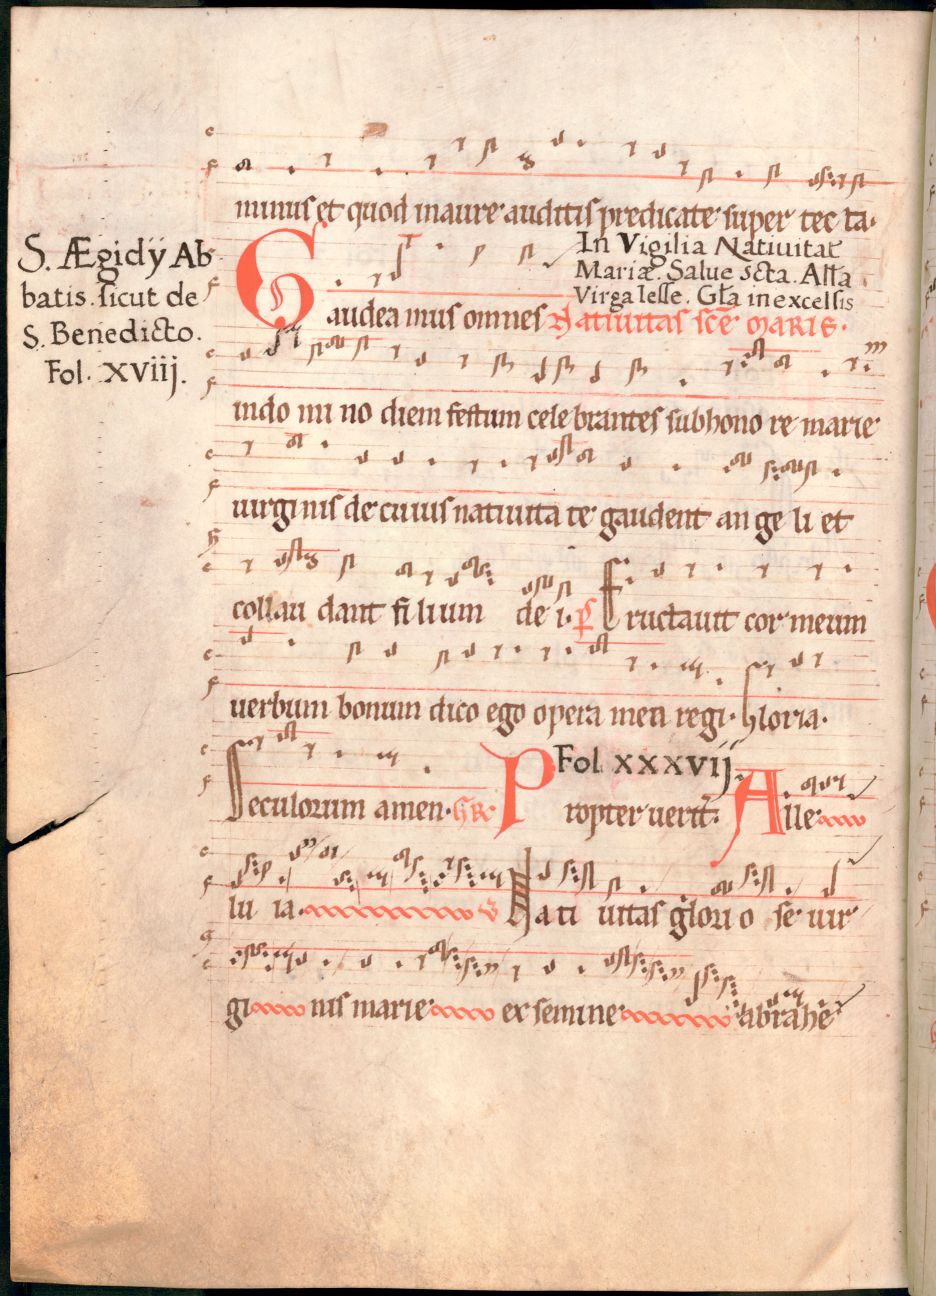 minus et quod in aure auditis predicate super tec ta.
S. Ægidÿ Ab
batis. sicut de
S. Benedicto.
Fol. XVIIj.
In Vigilia Nativitat
Mariæ. Salve scta. Alla
Virga Iesse. Gła in excelsis
Gaudea mus omnes Nativitas scē MARIE.
indo mi no diem festum cele brantes sub hono re marie
uirgi nis de cuius nativita te gaudent an ge li et
collau dant fi lium de i. Eructauit cor meum
uerbum bonum dico ego opera mea regi. Gloria.
Seculorum amen. GR. Propter uerit. Alle
Fol. XXXVIj.
lu ia. V Nati uitas glori o se uir
gi nis marie ex semine abrahe